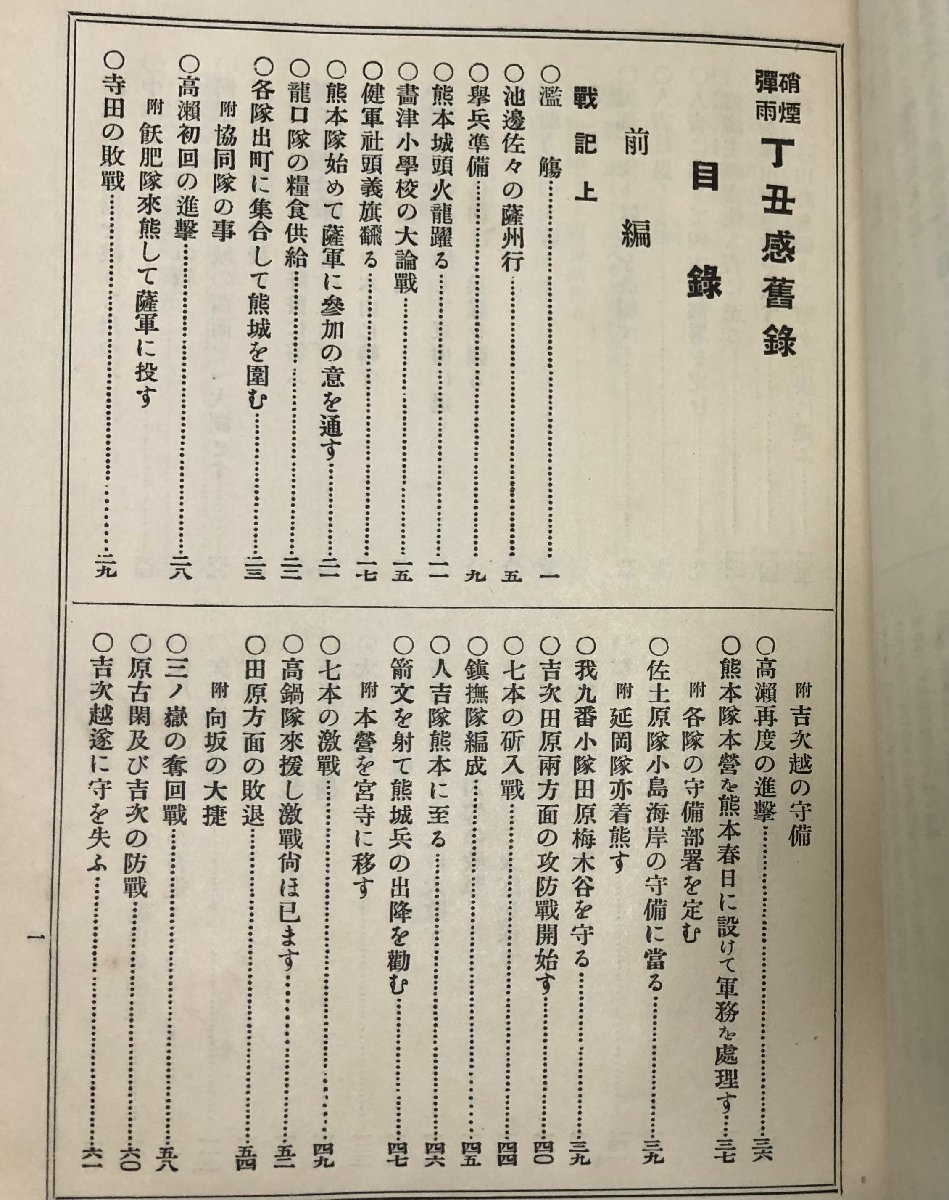 硝煙彈雨 丁丑感舊錄
目錄
前編
戰記上
○濫觴……一
○池邊佐々の薩州行……五
○擧兵準備……九
○熊本城頭火龍躍る……一一
○畵津小學校の大論戰……一五
○健軍社頭義旗飜る……一七
○熊本隊始めて薩軍に參加の意を通す……二一
○龍口隊の糧食供給……二二
○各隊出町に集合して熊城を圍む……二三
附 協同隊の事
○高瀨初回の進擊……二八
附 飫肥隊來熊して薩軍に投す
○寺田の敗戰……二九
附 吉次越の守備
○高瀨再度の進擊……三六
○熊本隊本營を熊本春日に設けて軍務を處理す……三七
附 各隊の守備部署を定む
○佐土原隊小島海岸の守備に當る……三九
附 延岡隊亦着熊す
○我九番小隊田原梅木谷を守る……三九
○吉次田原兩方面の攻防戰開始す……四〇
○七本の斫入戰……四四
○鎭撫隊編成……四五
○人吉隊熊本に至る……四六
○箭文を射て熊城兵の出降を勸む……四七
附 本營を宮寺に移す
○七本の激戰……四九
○高鍋隊來援し激戰尙ほ已ます……五二
○田原方面の敗退……五四
附 向坂の大捷
○三ノ嶽の奪回戰……五八
○原古閑及び吉次の防戰……六〇
○吉次越遂に守を失ふ……六一
一